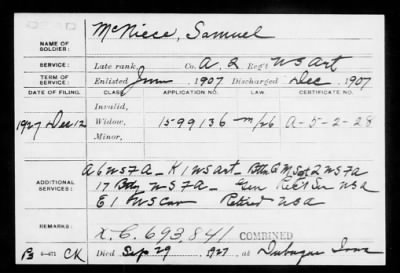 DEAD
NAME OF SOLDIER: McNiece, Samuel
SERVICE: Late rank, Co. A. 2 Reg't US Art
TERM OF SERVICE: Enlisted June 1907 Discharged Dec 1907
DATE OF FILING. CLASS. APPLICATION NO. LAW. CERTIFICATE NO.
Invalid,
1927 Dec 12 Widow, 1599136 A-5-2-28
Minor,
ADDITIONAL SERVICES: A 6 US F A - K 1 US Art - Btty G M Sgt 2 US F A
17 Bty US F A - Gen Rect Ser USA
E 1 US Cav Retired USA
REMARKS: X.C. 693,841 COMBINED
Died Sep 29, 1927, at Dubuque Iowa
3-471 CK